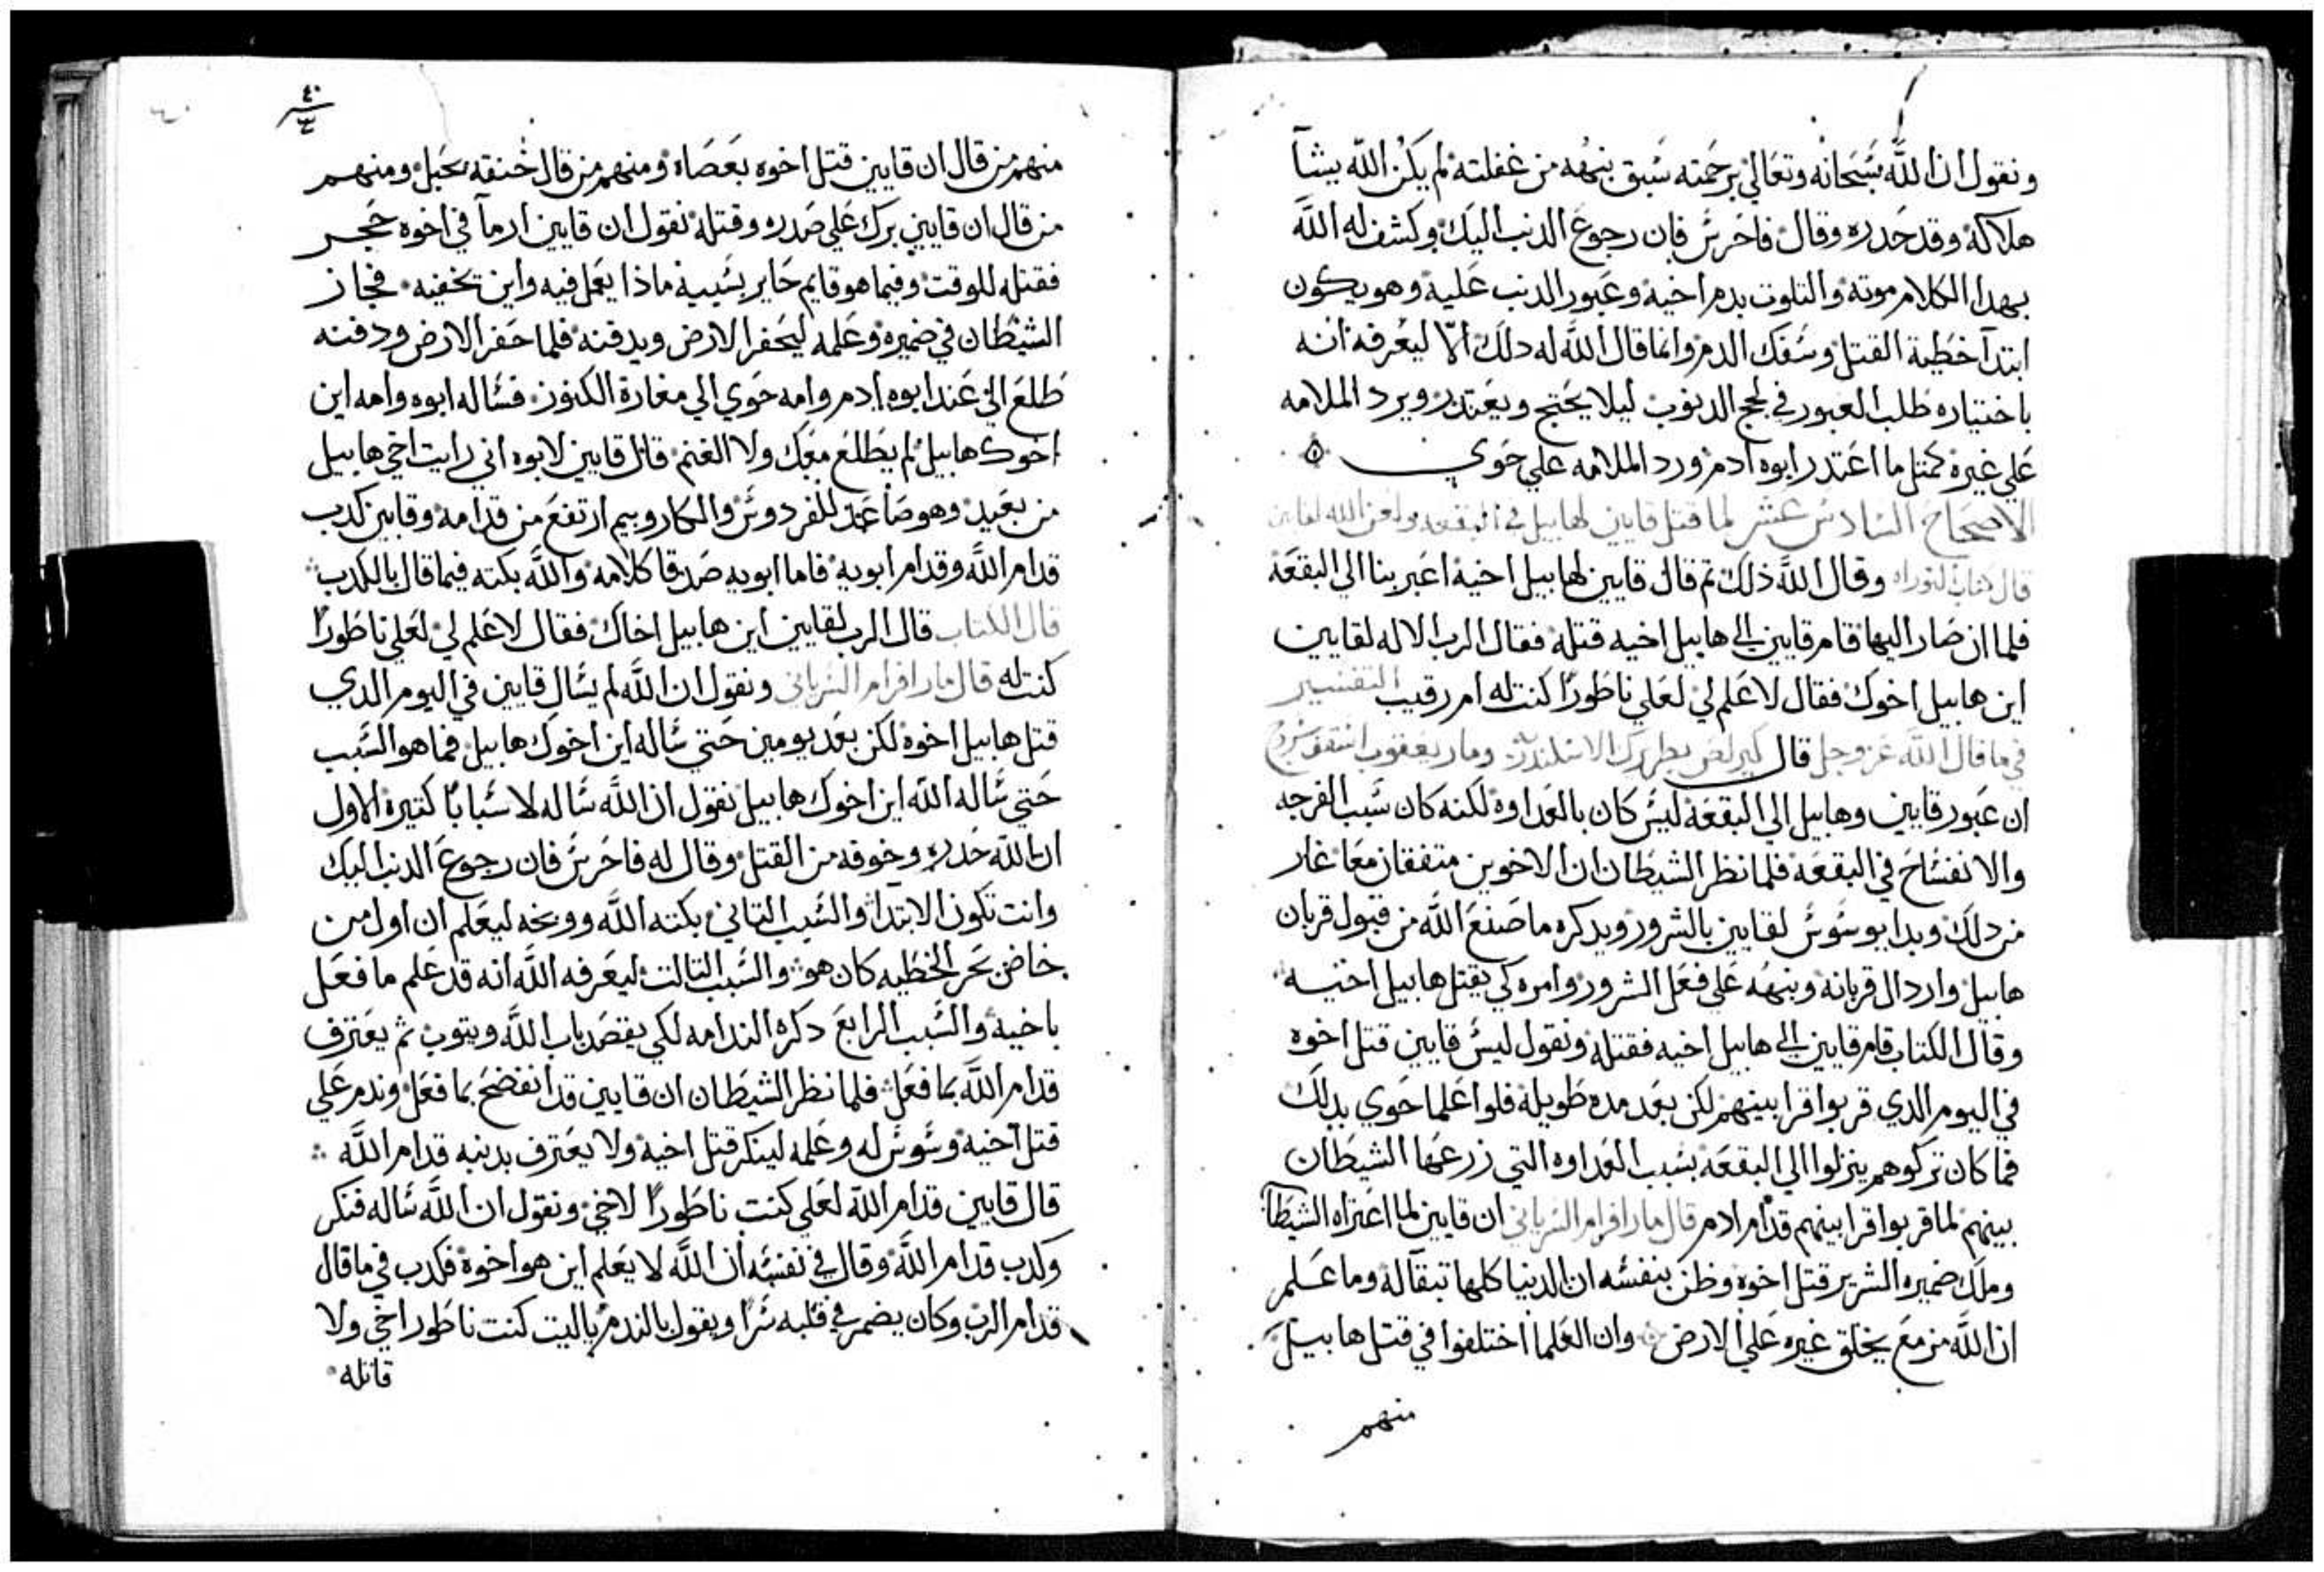 ونقول ان اللَّه سبحانه وتعالي برحمته سبق ينبهه من غفلته لم يكن اللَّه يشآ
هلاكه وقد حدره وقال فاحرس فان رجوع الدنب اليك وكشف له اللَّه
بهدا الكلام موته والتلوت بدم اخيه وعبور الدنب عليه وهو يكون
ابتدآ خطية القتل وسفك الدم وانما قال اللَّه له دلك الّا ليعرفه انه
باختياره طلب العبور في لجج الدنوب ليلا يحتج ويعتدر ويرد الملامه
علي غيره كمتل ما اعتدر ابوه ادم ورد الملامه علي حوي
الاصحاح السادس عشر لما قتل قايين لهابيل في البقعه ولعن الله لقايين
قال كتاب التوراه وقال اللَّه ذلك تم قال قايين لهابيل اخيه اعبر بنا الي البقعة
فلما ان صار اليها قام قايين الي هابيل اخيه قتله فقال الرب الاله لقايين
اين هابيل اخوك فقال لا علم لي لعلي ناطورًا كنت له ام رقيب التفسير
في ما قال اللَّه عز وجل قال كيرلص بطريرك الاسكندريه ومار يعقوب اسقف سروج
ان عبور قايين وهابيل الي البقعة ليس كان بالعداوه لكنه كان سبب الفرجه
والانفساح في البقعة فلما نظر الشيطان ان الاخوين متفقان معًا غار
من دلك وبدا يوسوس لقايين بالشرور ويدكره ما صنع اللَّه من قبول قربان
هابيل واردال قربانه وينبهه علي فعل الشرور وامره كي يقتل هابيل اخيه
وقال الكتاب قام قايين الي هابيل اخيه فقتله ونقول ليس قايين قتل اخوه
في اليوم الدي قربوا قرابينهم لكن بعد مده طويله فلوا علما حوي بدلك
فما كان تركوهم ينزلوا الي البقعة بسبب العداوه التي زرعها الشيطان
بينهم لما قربوا قرابينهم قدام ادم قال مار افرام السرياني ان قايين لما اعتراه الشيطان
وملك ضميره الشرير قتل اخوه وظن بنفسه ان الدنيا كلها تبقا له وما علم
ان اللَّه مزمع يخلق غيره علي الارض وان العلما اختلفوا في قتل هابيل
منهم
٤٠
منهم من قال ان قايين قتل اخوه بعصاه ومنهم من قال خنقه بحبل ومنهم
من قال ان قايين برك علي صدره وقتله نقول ان قايين ارمآ في اخوه حجر
فقتله للوقت وفيما هو قايم حاير بسببه ماذا يعمل فيه واين يخفيه فجاز
الشيطان في ضميره وعلمه ليحفر الارض ويدفنه فلما حفر الارض ودفنه
طلع الي عند ابوه ادم وامه حوي الي مغارة الكنوز فساله ابوه وامه اين
اخوك هابيل لم يطلع معك ولا الغنم قال قايين لابوه اني رايت اخي هابيل
من بعيد وهو صاعد للفردوس والكاروبيم ارتفع من قدامه وقايين كدب
قدام اللَّه وقدام ابويه فاما ابويه صدقا كلامه واللَّه بكته فيما قال بالكدب
قال الكتاب قال الرب لقايين اين هابيل اخاك فقال لا علم لي لعلي ناطورًا
كنت له قال مار افرام السرياني ونقول ان اللَّه لم يسال قايين في اليوم الدي
قتل هابيل اخوه لكن بعد يومين حتي ساله اين اخوك هابيل فما هو السبب
حتي ساله اللَّه اين اخوك هابيل نقول ان اللَّه ساله لاسبابًا كتيره الاول
ان اللَّه حدره وخوفه من القتل وقال له فاحرس فان رجوع الدنب اليك
وانت تكون الابتدآ والسبب التاني بكته اللَّه ووبخه ليعلم ان اول من
خاض بحر الخطيه كان هو والسبب التالت ليعرفه اللَّه انه قد علم ما فعل
باخيه والسبب الرابع دكره الندامه لكي يقصد باب اللَّه ويتوب ثم يعترف
قدام اللَّه بما فعل فلما نظر الشيطان ان قايين قد انفضح بما فعل وندم علي
قتل اخيه وسوس له وعلمه لينكر قتل اخيه ولا يعترف بدنبه قدام اللَّه
قال قايين قدام اللَّه لعلي كنت ناطورًا لاخي ونقول ان اللَّه ساله فنكر
وكدب قدام اللَّه وقال في نفسه ان اللَّه لا يعلم اين هو اخوه فكدب في ما قال
قدام الرب وكان يضمر في قلبه سرًا ويقول بالندم ياليت كنت ناطور اخي ولا
قاتله